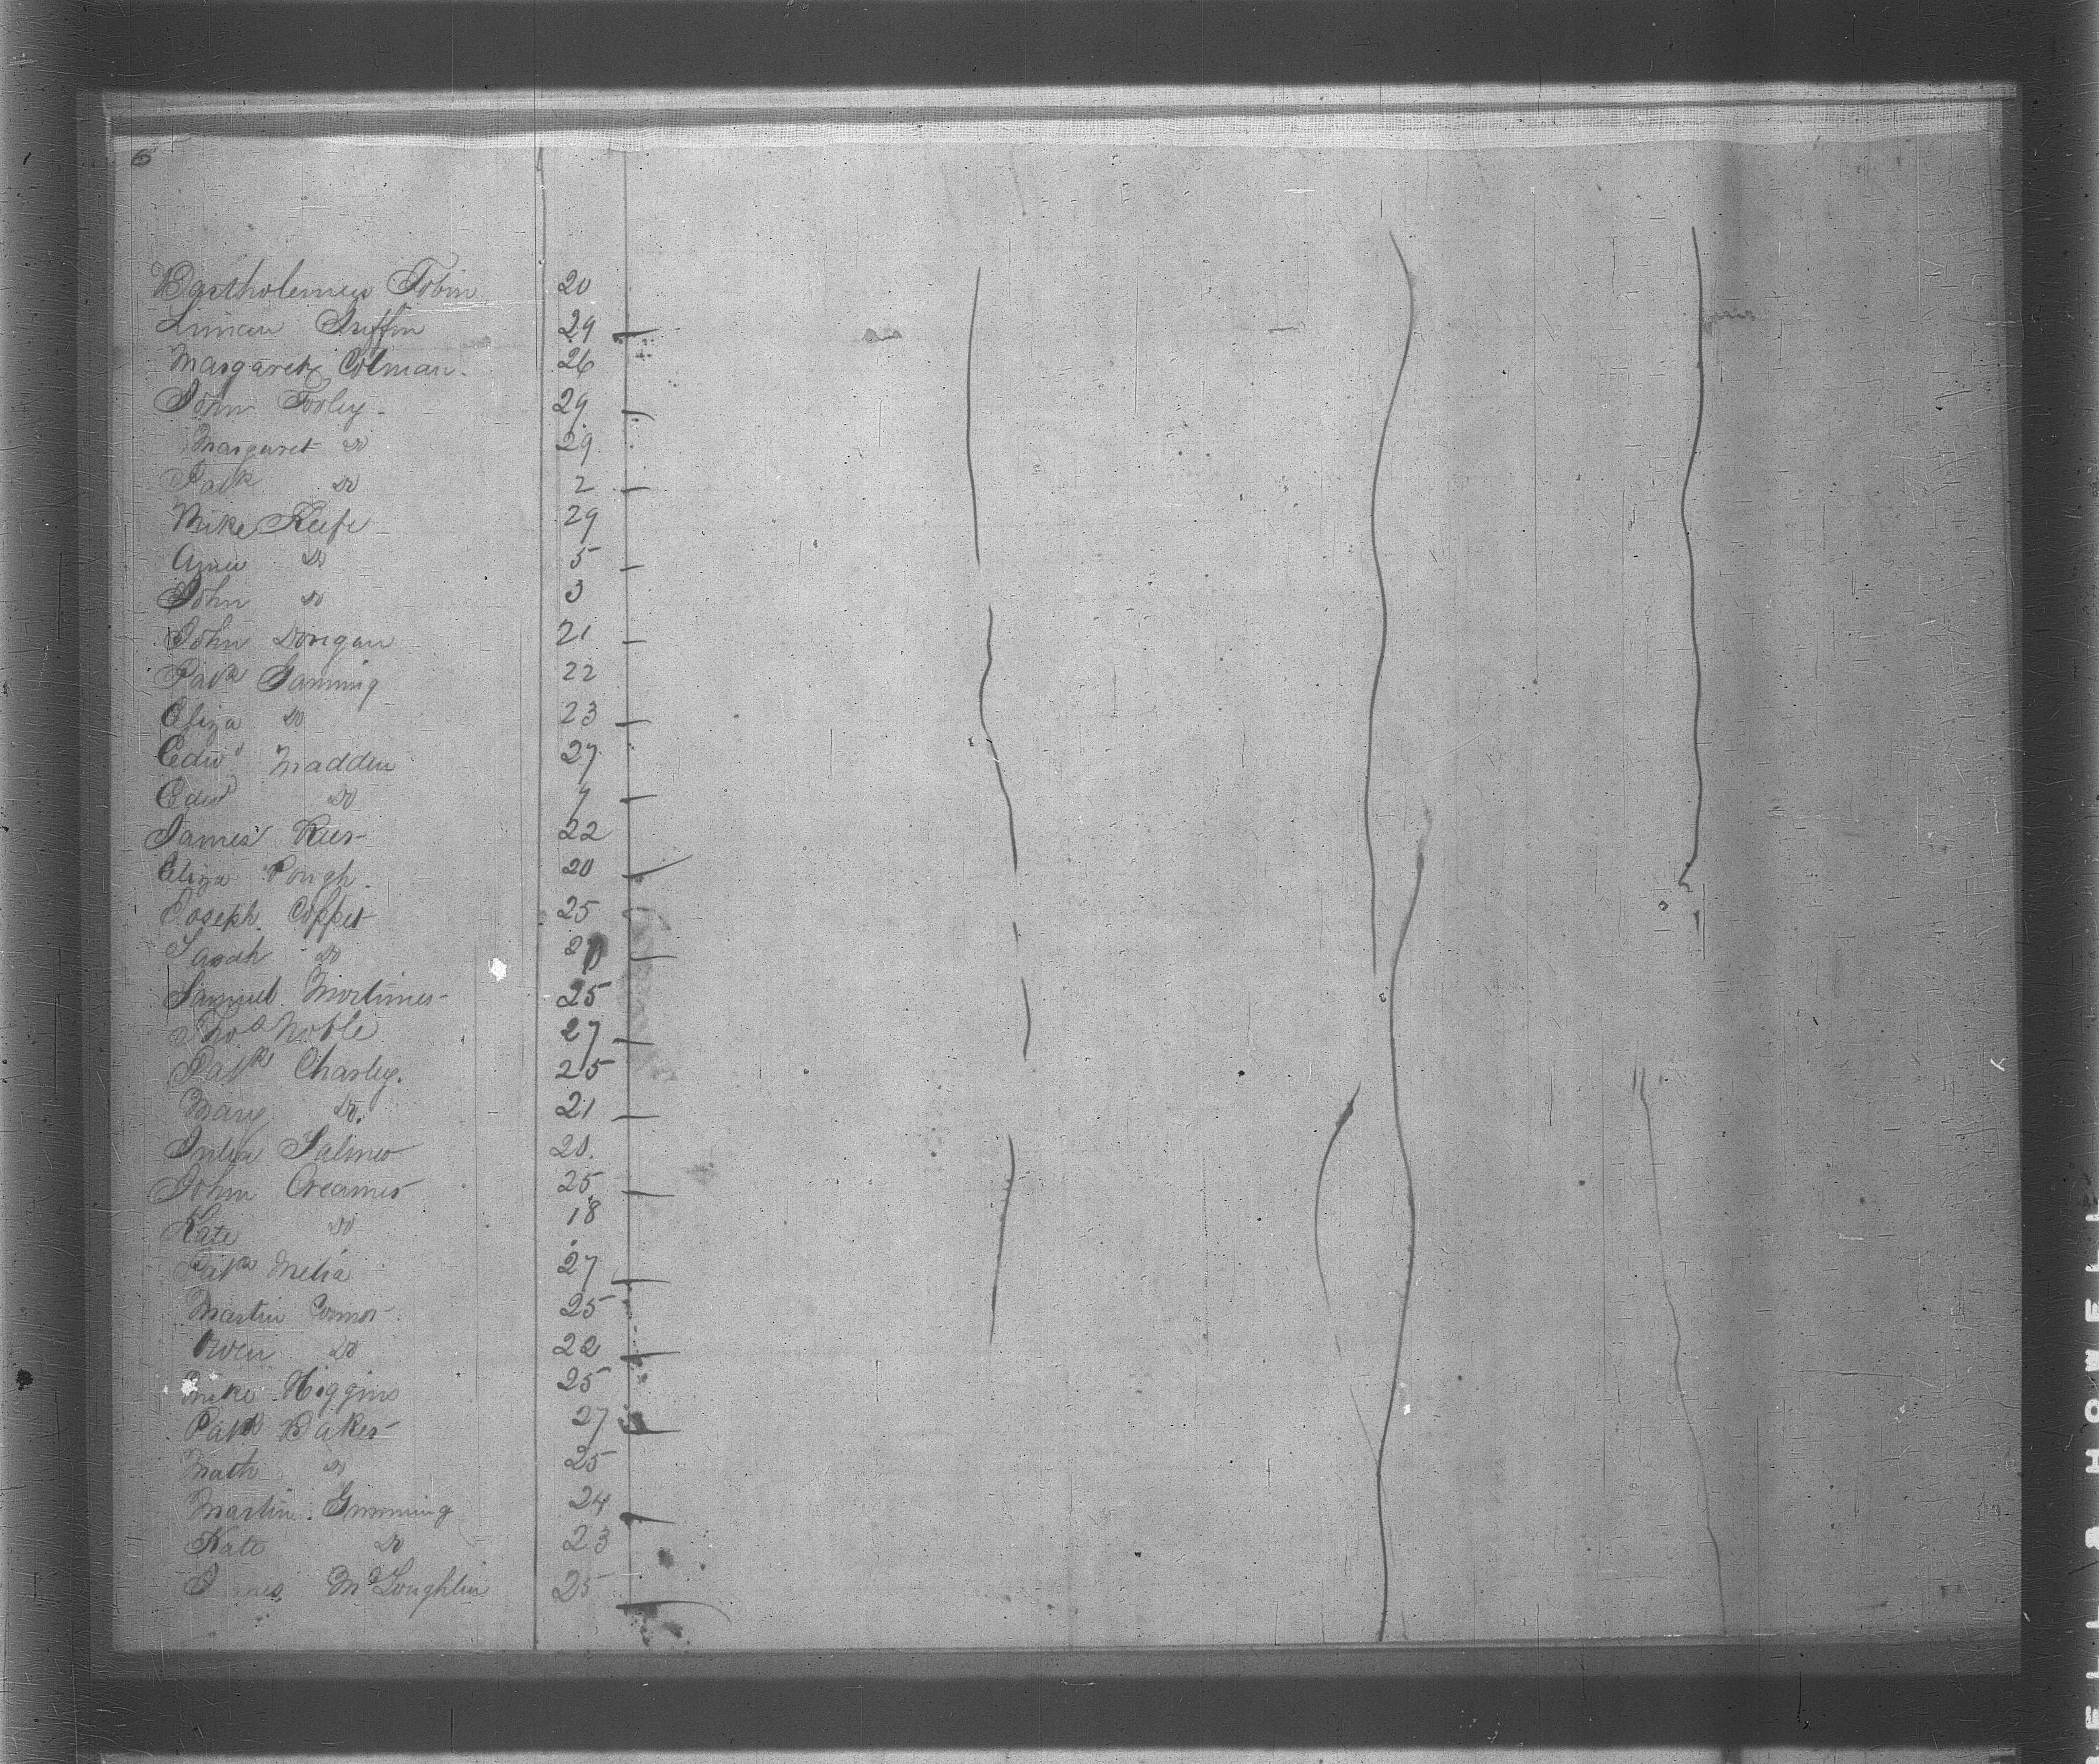 6
Bartholemew Tobin 20
Griffin 29
Margaret Colman. 26
John Fooley 29
Margaret Do 29
Patk Do 2
Mike Keefe 29
Do 5
John Do 3
John Dongan 21
Patk 22
Eliza Do 23
Edwd Madden 27
Edwd Do
James 22
Eliza Pough 20
Joseph Copper 25
Sarah Do
Samuel Mortimer 25
Thos Noble 27
Patk Charley. 25
Mary Do. 21
Julia 20.
John Creamer 25
Kate Do 18
Patk Melia 27
Martin Connor 25
Owen Do 22
Mike Higgins 25
Patk Baker 27
Math Do 25
Martin 24
Kate Do 23
James McLoughlin 25